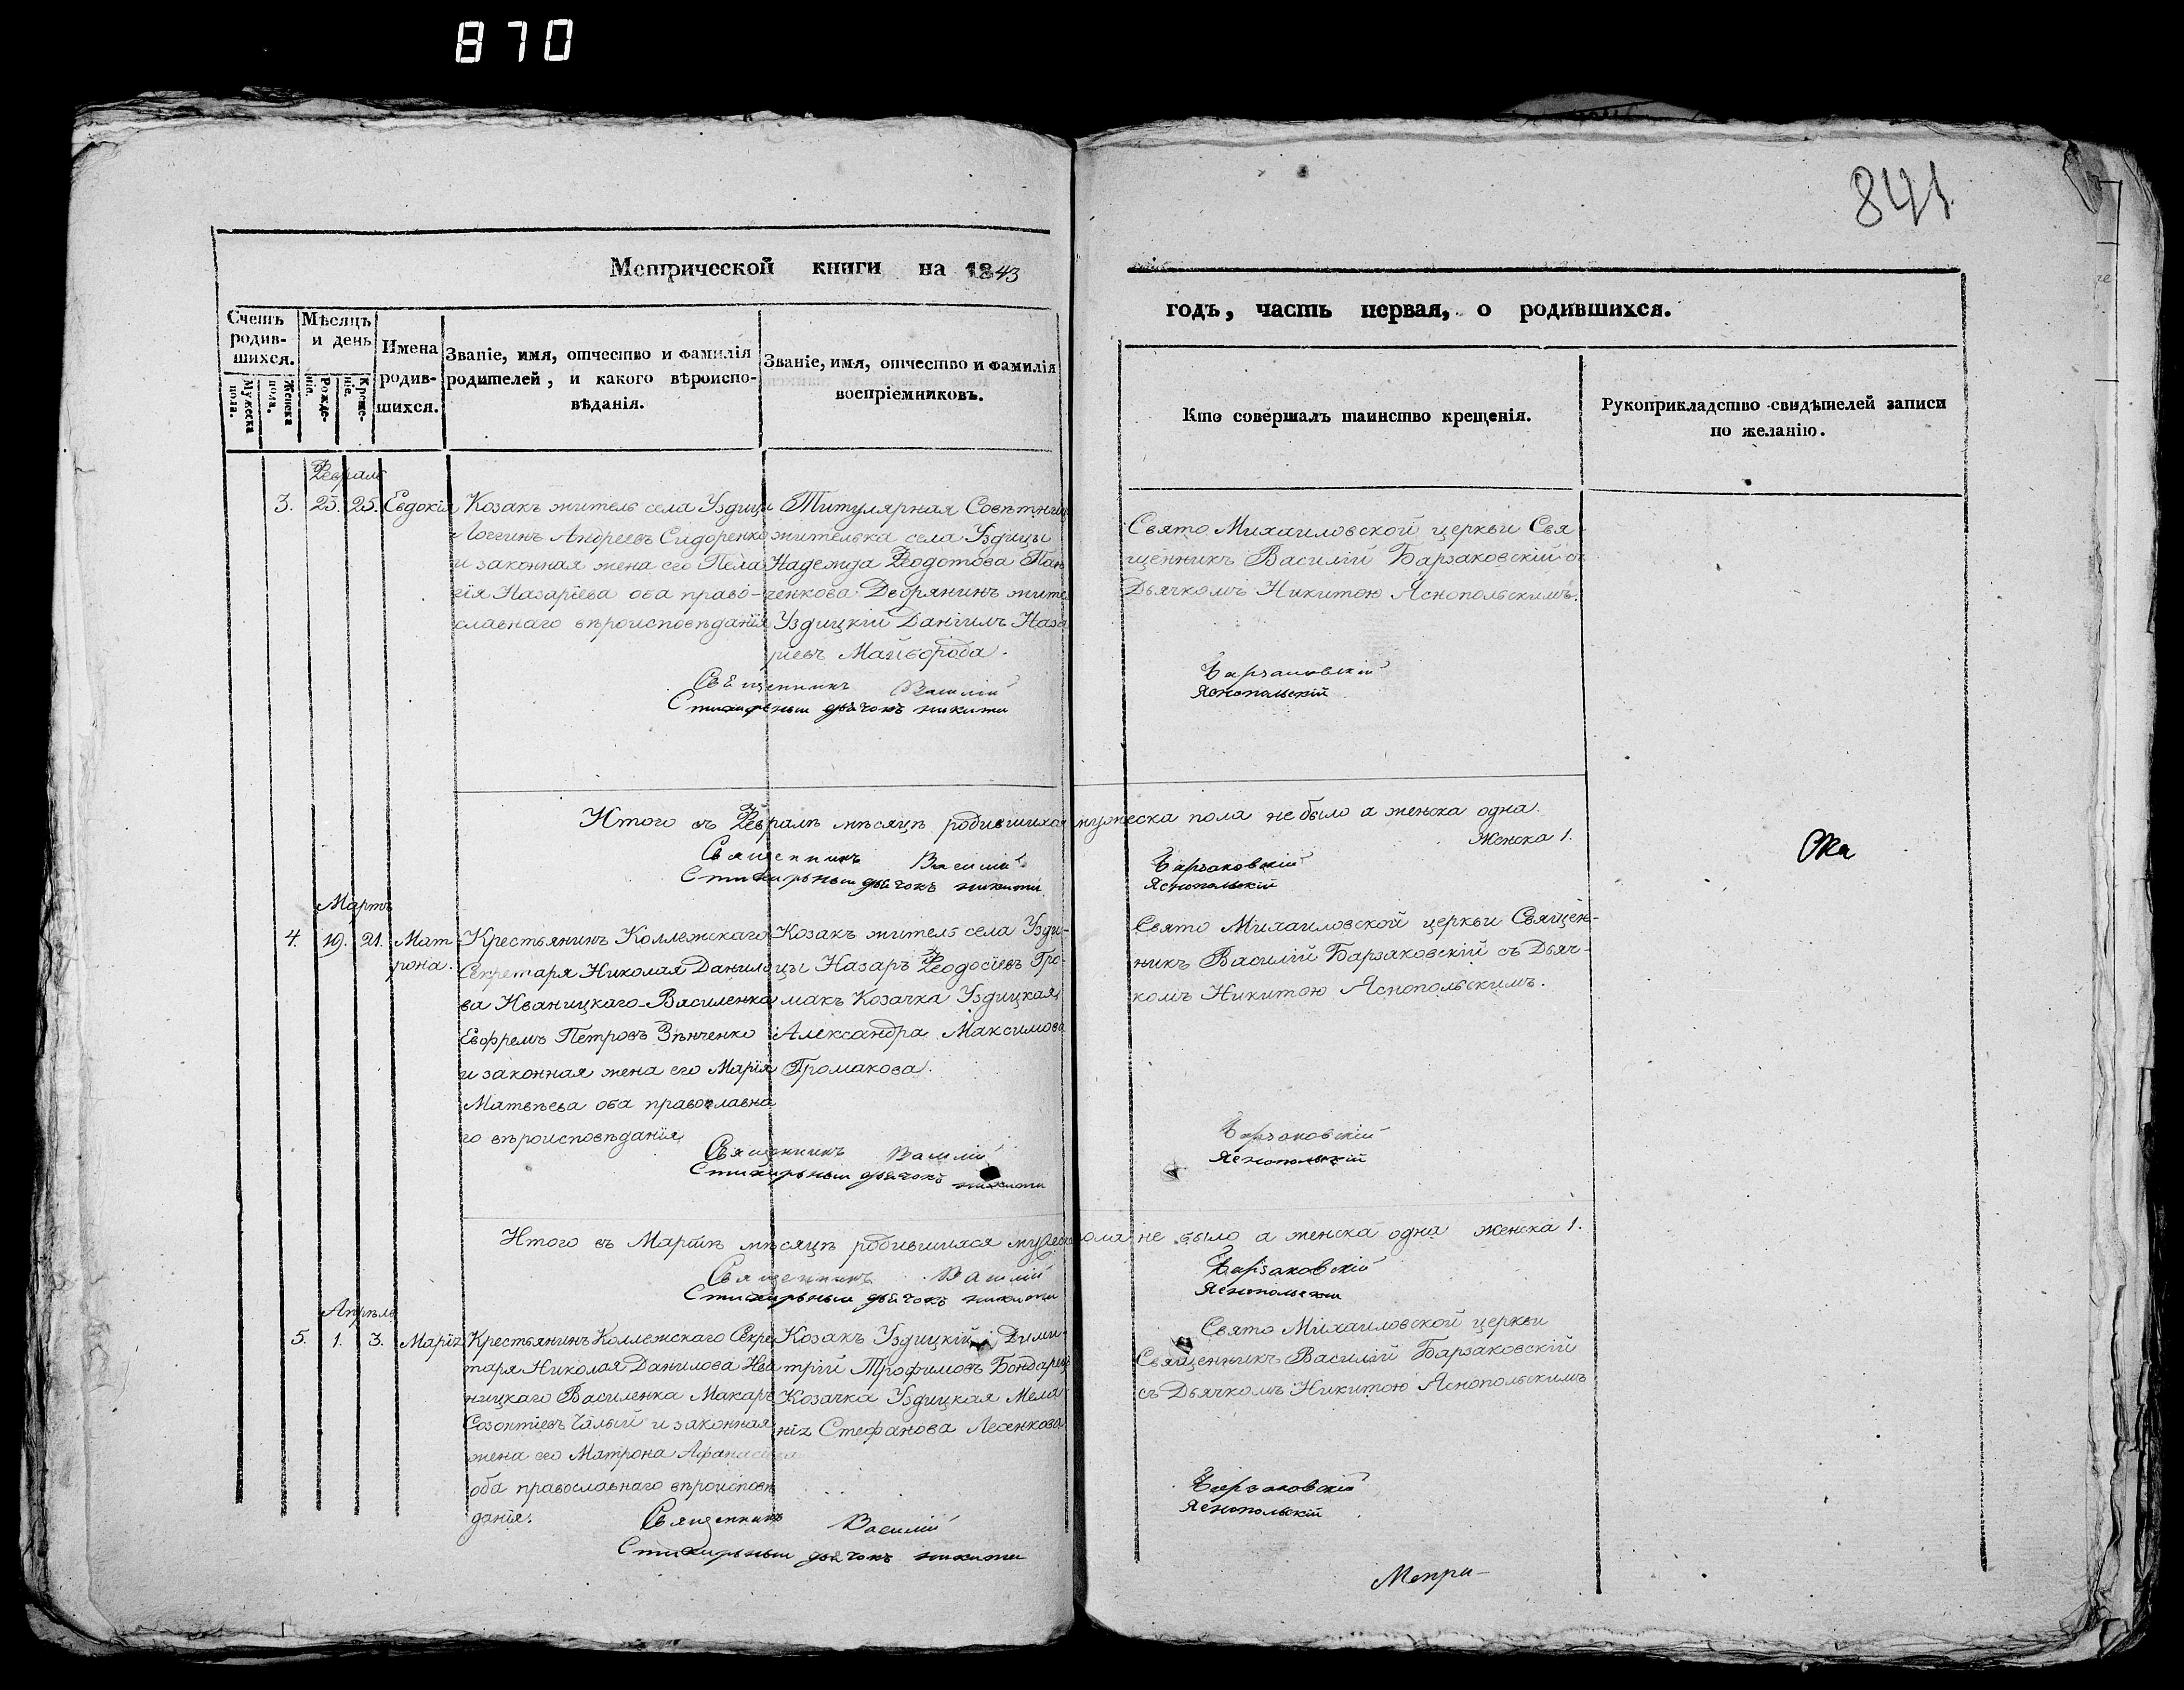 870
841.
Метрической книги на 1843
годъ, часть первая, о родившихся.
Счетъ родив-шихся.
Мужеска пола.
Женска пола.
Мѣсяцъ и день
Рожде-нія.
Креще-нія.
Имена родив-шихся.
Званіе, имя, отчество и фамилія
родителей, и какого вѣроиспо-
вѣданія.
Званіе, имя, отчество и фамилія
воспріемниковъ.
Кто совершалъ таинство крещенія.
Рукоприкладство свидѣтелей записи
по желанію.
Февраль
3. 23. 25. Евдокія
Козакъ житель села Уздицы
Логгинъ Андреевъ Сидоренко
и законная жена его Пела
гія Назаріева оба право-
славнаго вѣроисповѣданія
Титулярная Совѣтница
жителька села Уздицы
Надежда Ѳеодотова Пан
ченкова Дворянинъ жите
Уздицкій Даніилъ Наза
ріевъ Майборода.
Свято Михаиловской церкви Свя
щенникъ Василій Барзаковскій съ
Дьячкомъ Никитою Яснопольскимъ.
Священникъ Василій Барзаковскій
Стихирный дьячокъ никита Яснопольскій
Итого въ Ѳевралѣ мѣсяцѣ родившихся мужеска пола не было а женска одна.
Женска 1.
Священникъ Василій Барзаковскій
Стихирный дьячокъ никита Яснопольскій
Мартъ
4. 19. 21. Мат
рона.
Крестьянинъ Коллежскаго
Секретаря Николая Данило
ва Иваницкаго-Василенка
Евфремъ Петровъ Зѣнченко
и законная жена его Марія
Матвѣева оба православна
го вѣроисповѣданія
Козакъ житель села Узди-
цы Назаръ Ѳеодосіевъ Гро-
макъ Козачка Уздицкая
Александра Максимова
Громакова.
Свято Михаиловской церкви Священ-
никъ Василій Барзаковскій съ Дьяч-
комъ Никитою Яснопольскимъ.
Священникъ Василій Барзаковскій
Стихирный дьячокъ никита Яснопольскій
Итого въ Мартѣ мѣсяцѣ родившихся мужеска пола не было а женска одна женска 1.
Священникъ Василій Барзаковскій
Стихирный дьячокъ никита Яснопольскій
Апрѣль
5. 1. 3. Марія
Крестьянинъ Коллежскаго Секре
таря Николая Данилова Ива
ницкаго Василенка Макаръ
Созонтіевъ Чалый и законная
жена его Матрона Афанасіева
оба православнаго вѣроисповѣ
данія.
Козакъ Уздицкій Дими-
трій Трофимовъ Бондарен
Козачка Уздицкая Мела
нія Стефанова Лесенкова
Свято Михаиловской церкви
Священникъ Василій Барзаковскій
съ Дьячкомъ Никитою Яснопольскимъ
Священникъ Василій Барзаковскій
Стихирный дьячокъ никита Яснопольскій
Метри-